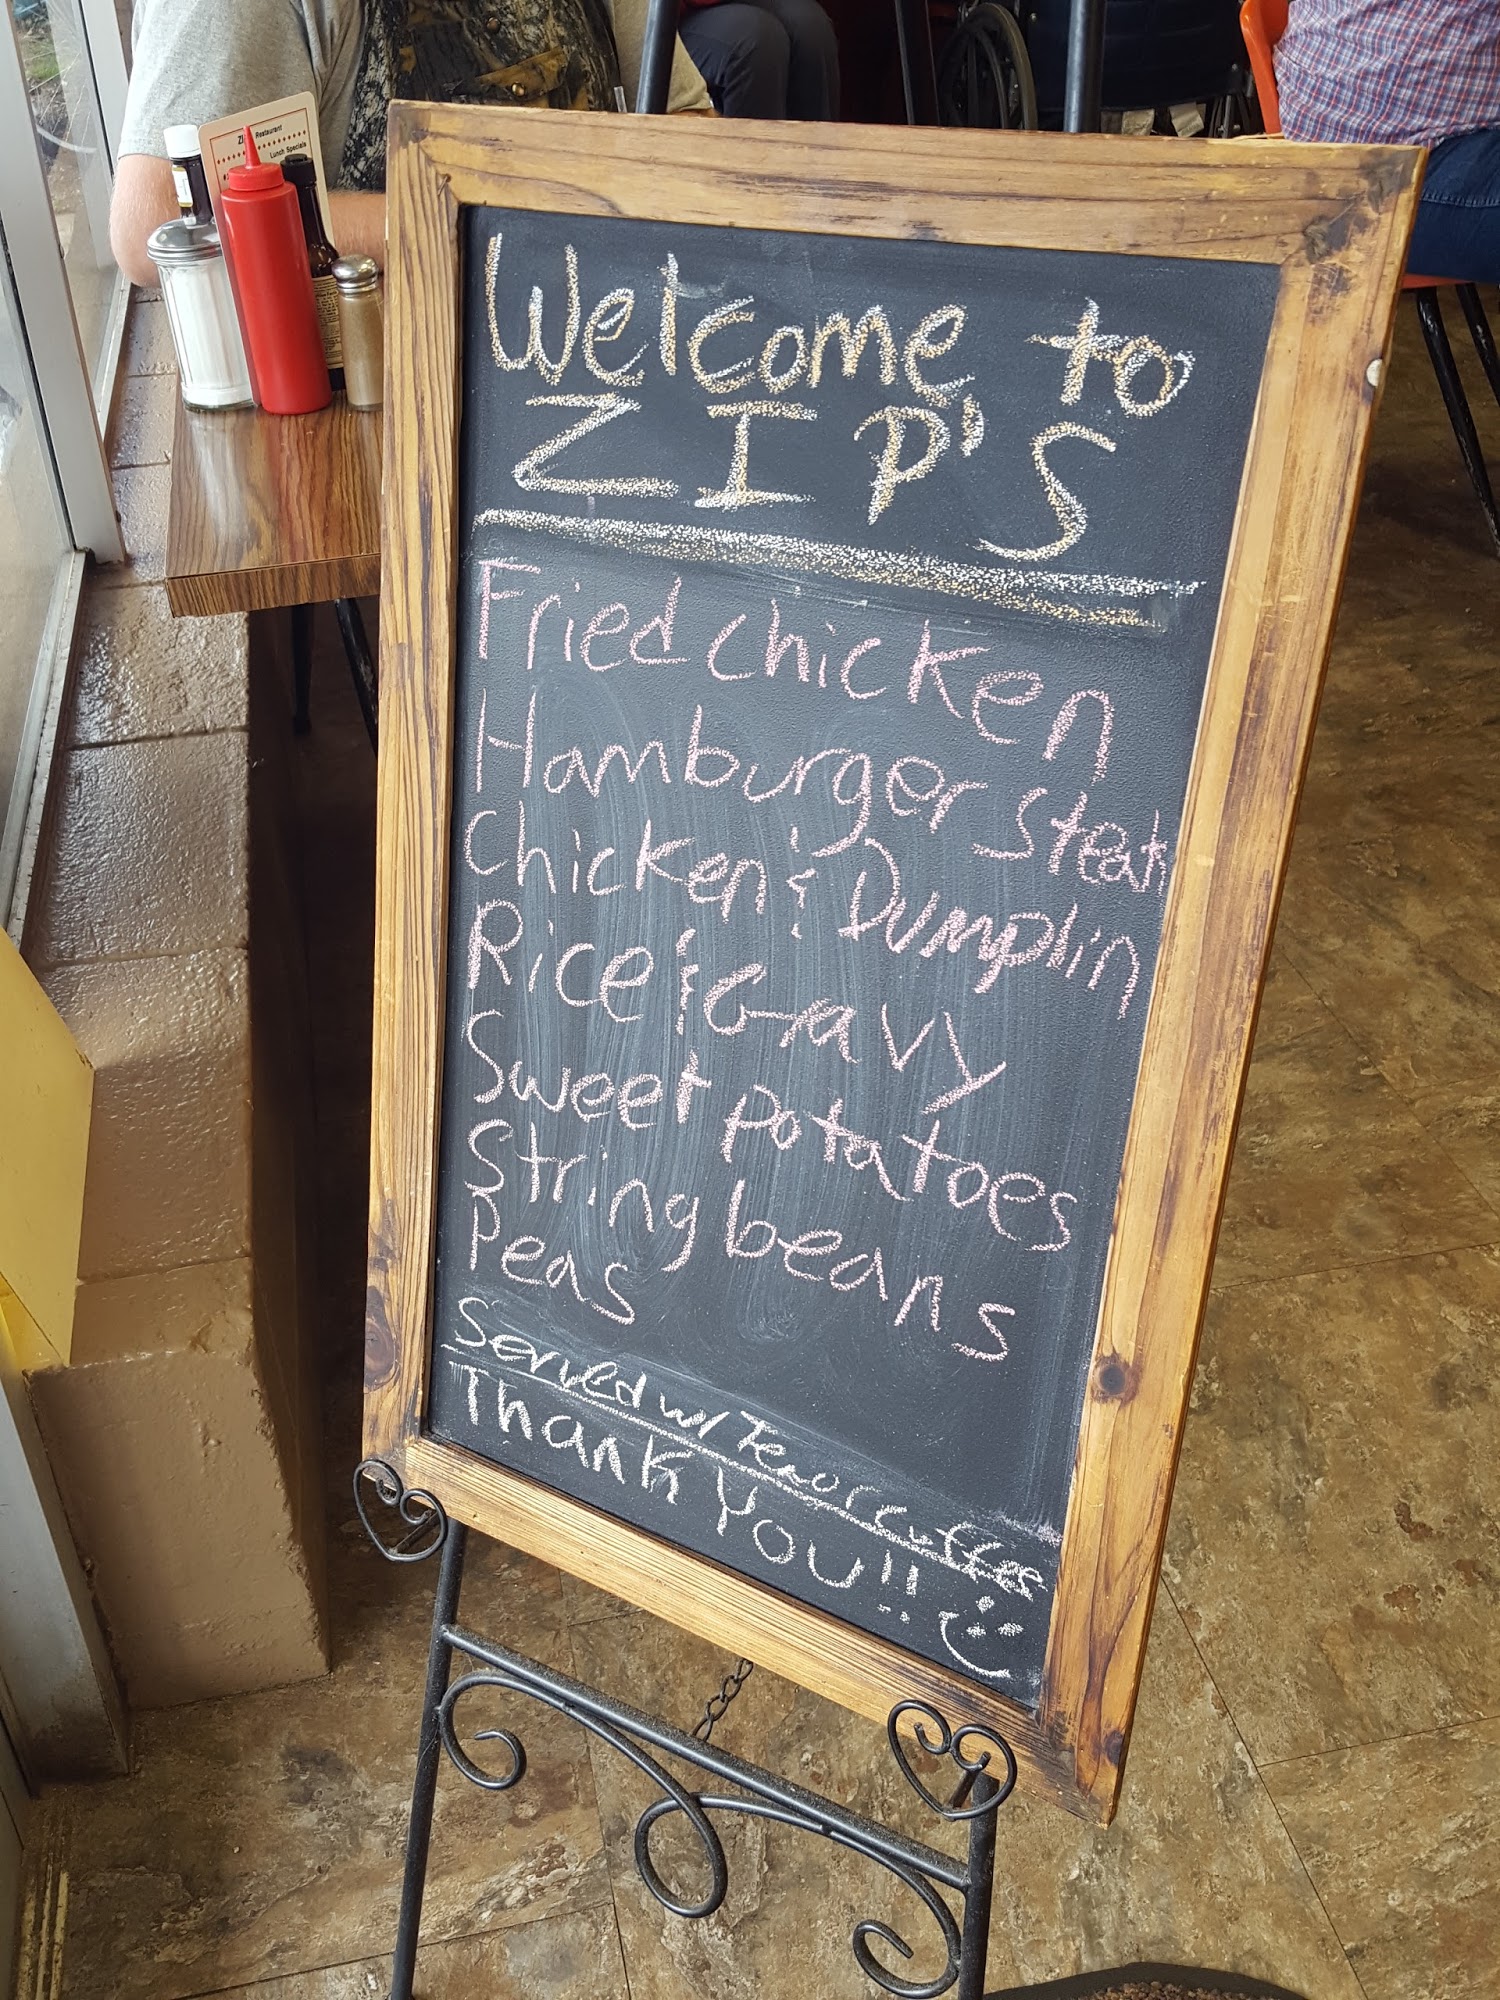 Zi Restaurant
Lunch Specials
Welcome to
ZIP'S
Fried chicken
Hamburger Steak
Chicken & Dumplin
Rice & Gravy
Sweet potatoes
String beans
Peas
Served w/ Tea or coffee
Thank You!!